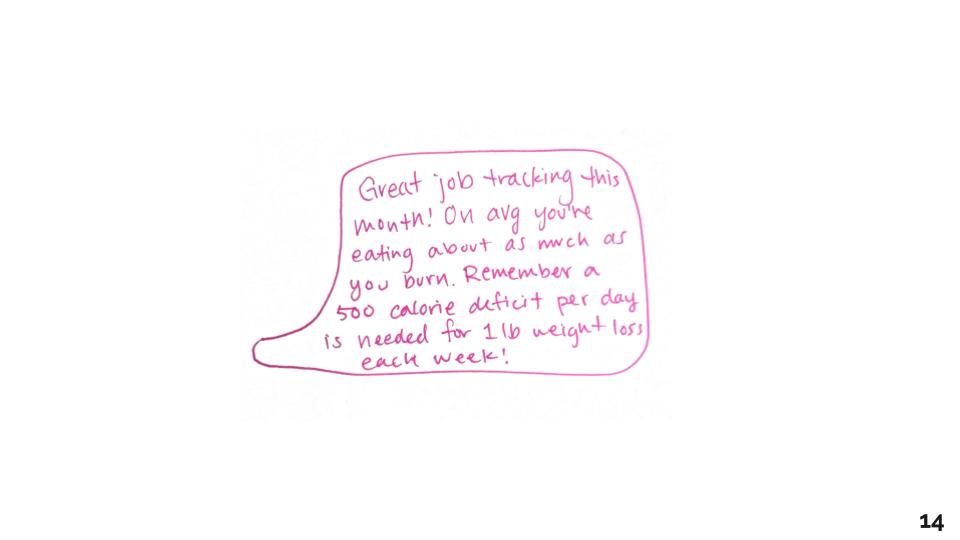 Great job tracking this
month! On avg you're
eating about as much as
you burn. Remember a
500 calorie deficit per day
is needed for 1 lb weight loss
each week!
14